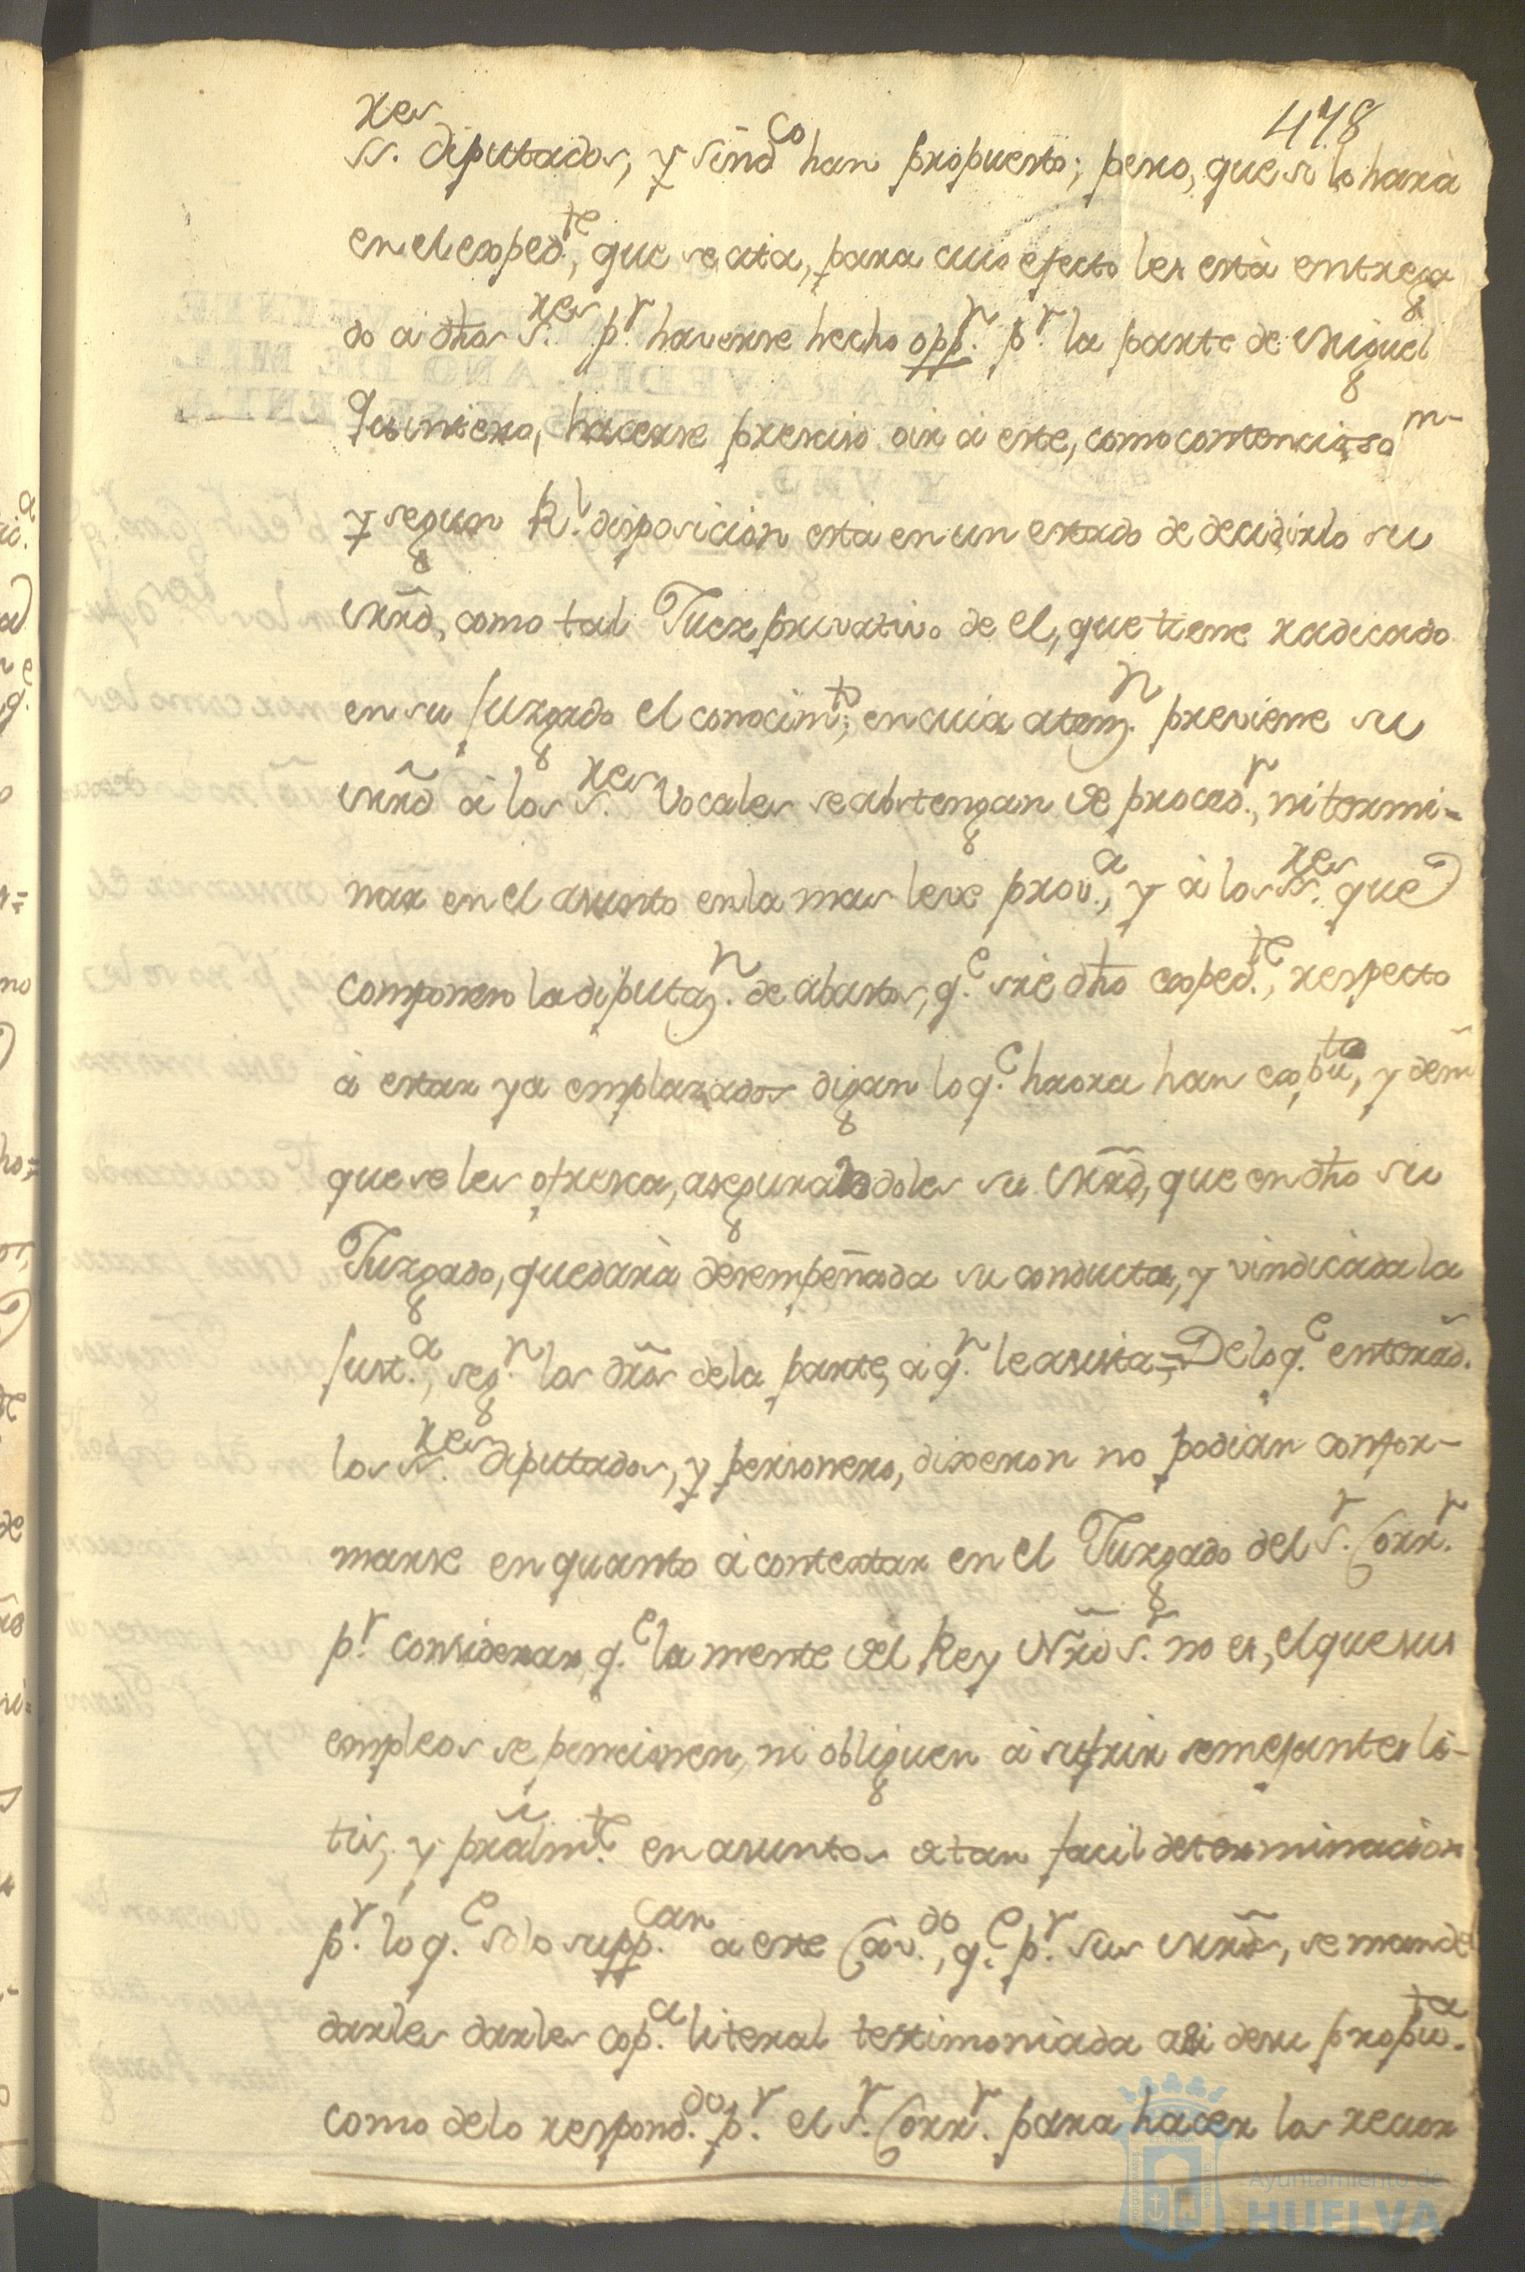 478
SS.res diputados, y sindco han propuesto; pero, que si lo harà
en el exped.te, que se cita, para cuio efecto les està entrega
do a dhos S.res p.r haverse hecho opp.n p.r la parte de Miguel
Quintero, hacerse preciso oir a este, como contencioso m-
y segun R.l disposicion està en un estado de decidirlo su
Mrd, como tal Juez privativo de el, que tiene radicado
en su Juzgado el conocim.to; en cuia atenz.n previene su
Mrd à los S.res Vocales se abstengan de proced.r, ni termi=
nar en el asunto en la mas leve prov.a, y à los SS.res que
componen la diputaz.n de abastos, q.e s̃re dho exped.te, respecto
à estar ya emplazados digan lo q.e haora han expũta, y dem̃
que se les ofresca, asegurandoles su Mrd, que en dho su
Juzgado, quedarà desempeñada su conducta, y vindicada la
Just.a, seg.n los dr̃os de la parte, à q.n le asista= De lo q.e enterad̃.
los SS.res diputados, y personero, dixeron no podian confor-
marse en quanto à contextar en el Juzgado del S.r Corr.r
p.r considerar, q.e la mente del Rey Nr̃o S.r no es, el que sus
empleos se pencionen, ni obliguen à sufrir semejantes li-
tis, y prãlm.te en asuntos de tan facil determinacion
p.r lo q.e solo supp.can a este Cav.do, q.e p.r sus Mrds, se mande
darles darles cop.a literal testimoniada asi de su propũ.ta
como de lo respond.do p.r el S.r Corr.r para hacer los recur
Ayuntamiento de
HUELVA